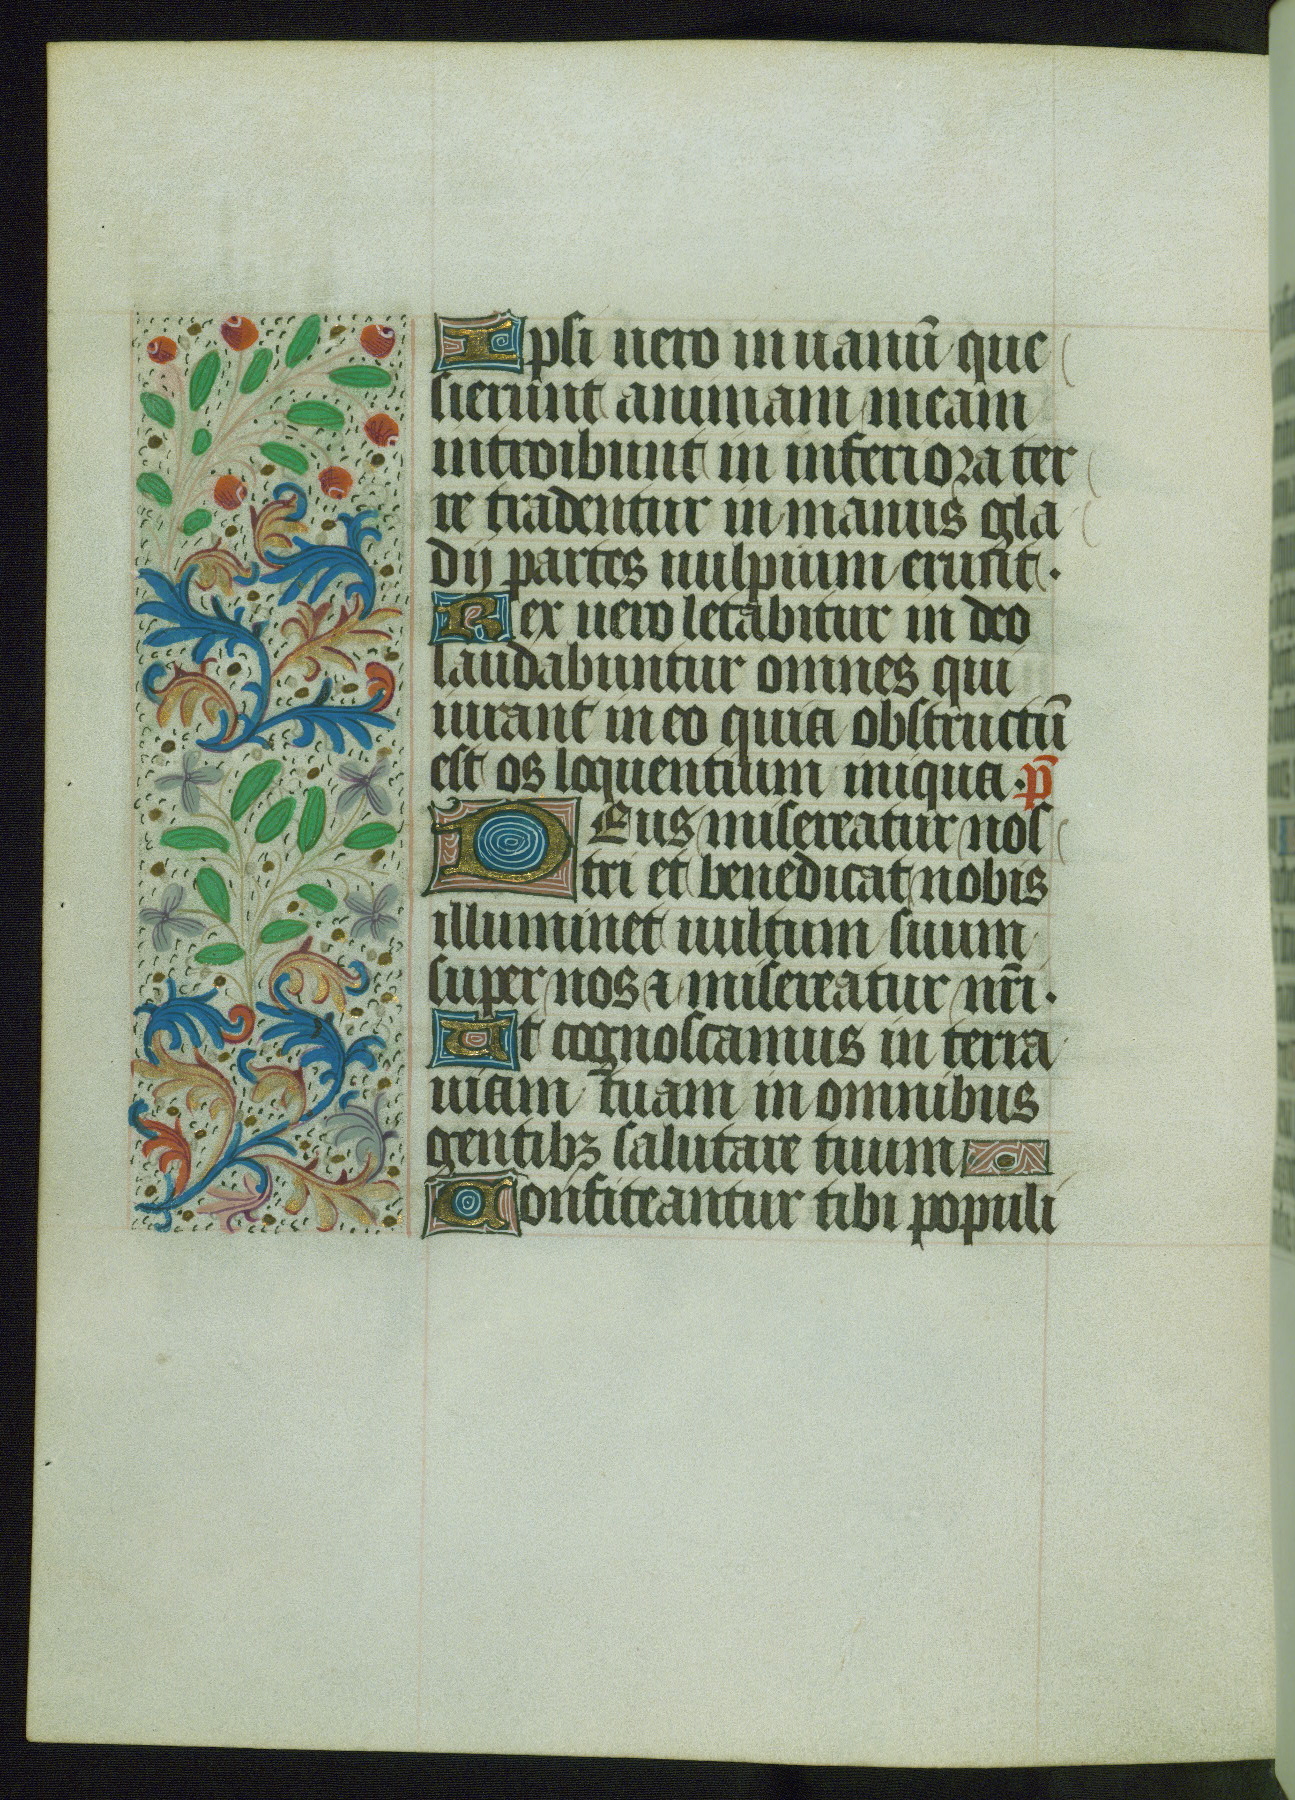 Ipsi uero in uanũ que
sierunt animam meam
introibunt in inferiora ter
re tradentur in manus gla
dij partes uulpium erunt.
Rex uero letabitur in deo
laudabuntur omnes qui
iurant in eo quia obstructũ
est os loquentium iniqua. p̃
DEus misereatur nos
tri et benedicat nobis
illuminet uultum suum
super nos ⁊ misereatur nr̃i.
Ut cognoscamus in terra
uiam tuam in omnibus
gentibꝫ salutare tuum
Confiteantur tibi populi